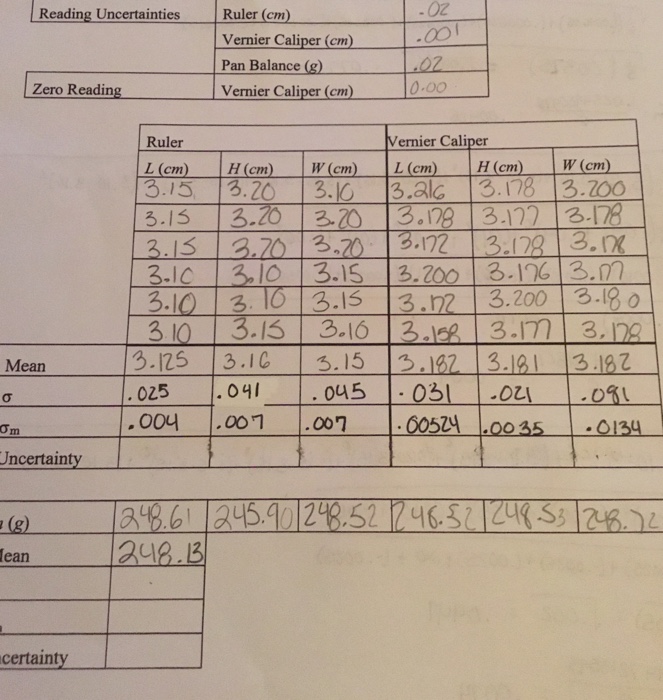 Reading Uncertainties Ruler (cm) .02
Vernier Caliper (cm) .001
Pan Balance (g) .02
Zero Reading Vernier Caliper (cm) 0.00
Ruler Vernier Caliper
L (cm) H (cm) W (cm) L (cm) H (cm) W (cm)
3.15 3.20 3.10 3.216 3.178 3.200
3.15 3.20 3.20 3.178 3.177 3.178
3.15 3.20 3.20 3.172 3.178 3.178
3.10 3.10 3.15 3.200 3.176 3.17
3.10 3.10 3.15 3.172 3.200 3.180
3.10 3.15 3.10 3.158 3.177 3.178
Mean 3.125 3.16 3.15 3.182 3.181 3.182
σ .025 .041 .045 .031 .021 .081
σm .004 .007 .007 .00524 .0035 .0134
Uncertainty
(g) 248.61 245.90 248.52 246.52 248.53 248.72
Mean 248.13
certainty